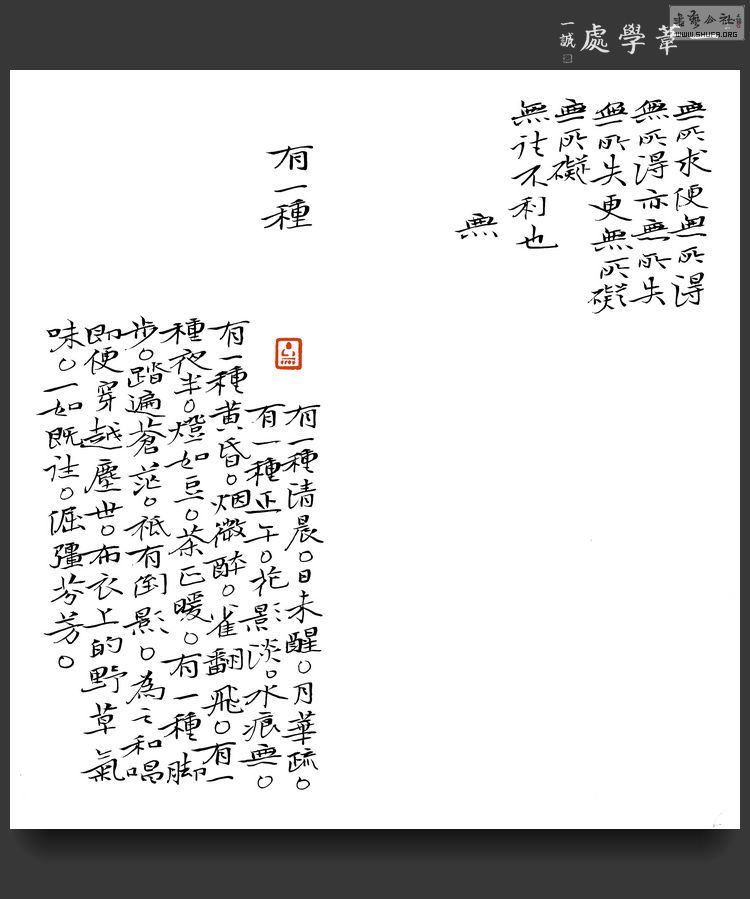 一葦學處
一誠
WWW.SHUFA.ORG
無所求便無所得
無所得亦無所失
無所失更無所礙
無所礙
無往不利也
無
有一種
有一種清晨。日未醒。月華疏。
有一種正午。花影淡。水痕無。
有一種黃昏。烟微醉。雀翻飛。有一
種夜半。燈如豆。茶正暖。有一種脚
步。踏遍蒼茫。祗有倒影。為之和唱
即便穿越塵世。布衣上的野草氣
味。一如既往。倔彊芬芳。